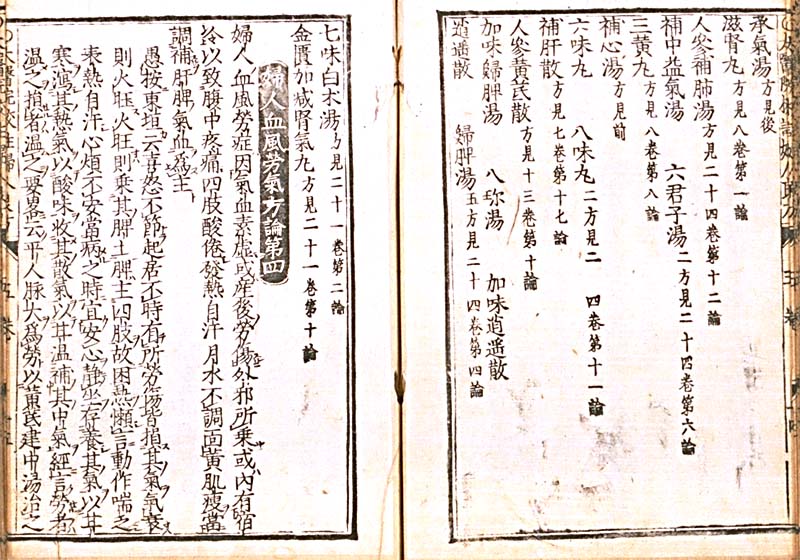 承氣湯方見後
滋腎丸方見八卷第一論
人參補肺湯方見二十四卷第十二論
補中益氣湯 六君子湯二方見二十四卷第六論
三黃丸方見八卷第八論
補心湯方見前
六味丸 八味丸二方見二 四卷第十一論
補肝散方見七卷第十七論
人參黃芪散方見十三卷第十論
加味歸脾湯 八珍湯 加味逍遙散
逍遙散 歸脾湯五方見二十四卷第四論
七味白木湯方見二十一卷第二論
金匱加減腎氣丸方見二十一卷第十論
婦人血風勞氣方論第四
婦人血風勞症因氣血素虛或產後勞傷外邪所乘或內有宿
冷以致腹中疼痛四肢酸倦發熱自汗月水不調面黃肌瘦當
調補肝脾氣血為主
愚按東垣云喜怒不節起居不時有所勞傷皆損其氣氣衰
則火旺火旺則乘其脾土脾主四肢故困熱懶言動作喘乏
表熱自汗心煩不安當病之時宜安心靜坐存養其氣以甘
寒瀉其熱氣以酸味收其散氣以甘溫補其中氣經言勞者
溫之損者溫之要畧云平人脉大為勞以黃芪建中湯治之